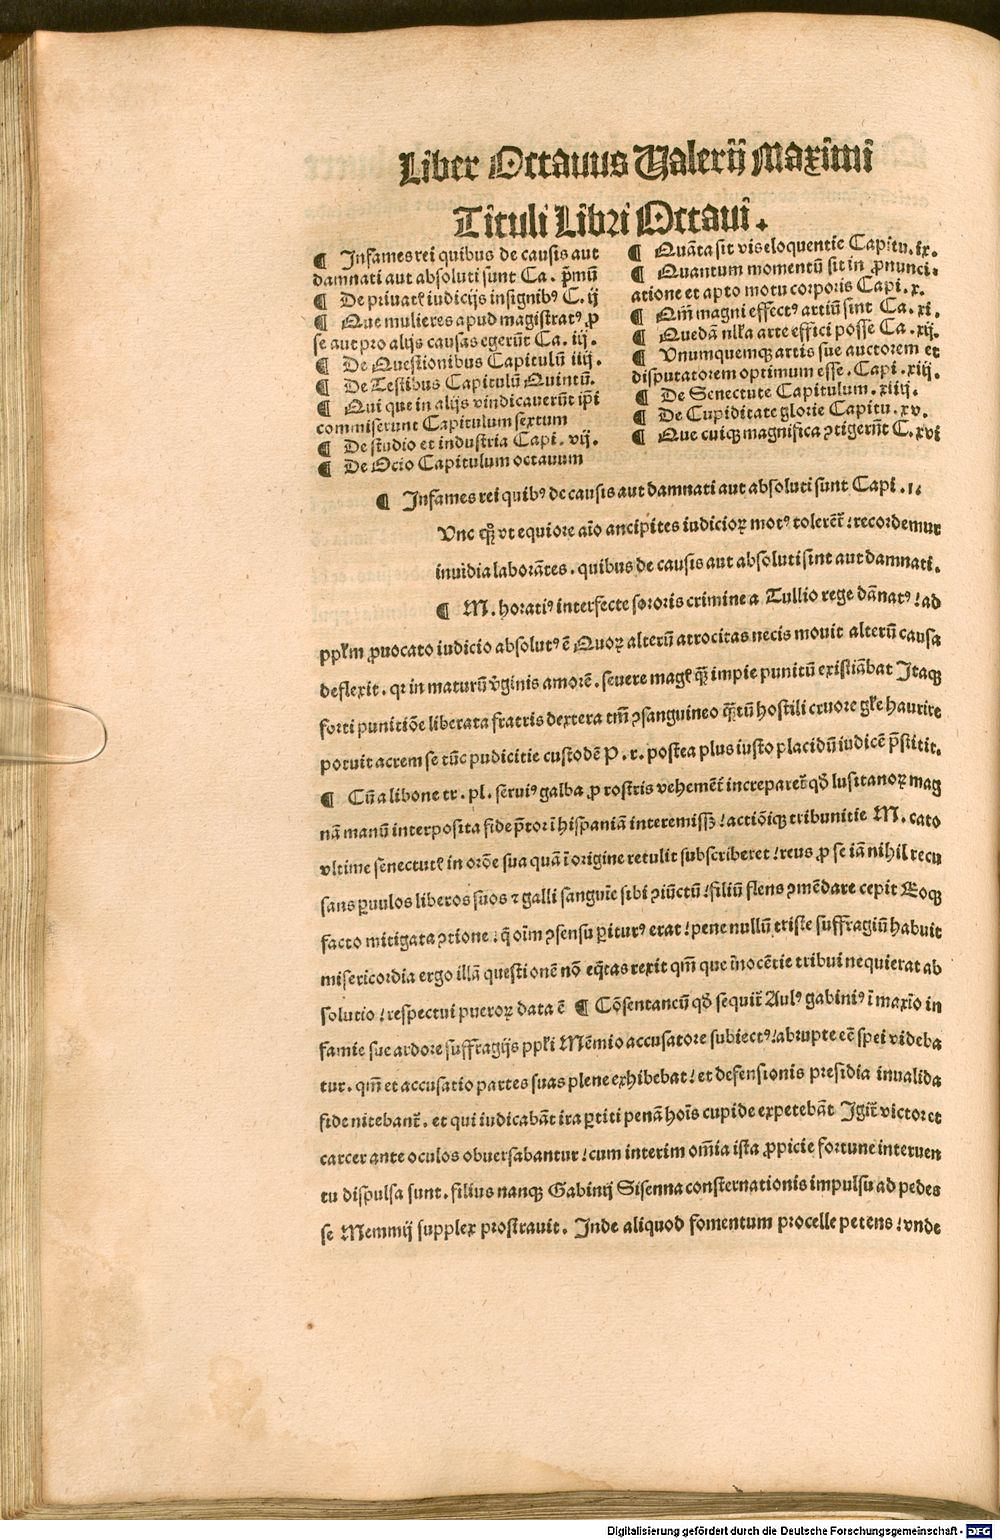 Liber Octauus Valerij Maximi
Tituli Libri Octaui.
¶ Infames rei quibus de causis aut
damnati aut absoluti sunt Ca. p̄mū
¶ De priuatꝭ iudicijs insignibꝰ C. ij
¶ Que mulieres apud magistratꝰ ꝓ
se aut pro alijs causas egerūt Ca. iij.
¶ De Questionibus Capitulū iiij.
¶ De Testibus Capitulū Quintū.
¶ Qui que in alijs vindicauerūt ip̄i
commiserunt Capitulum sextum
¶ De studio et industria Capi. vij.
¶ De Ocio Capitulum octauum
¶ Quāta sit vis eloquentie Capitu. ix.
¶ Quantum momentū sit in ꝓnunci-
atione et apto motu corporis Capi. x.
¶ Qm̄ magni effectꝰ artiū sint Ca. xi.
¶ Quedā nlla arte effici posse Ca. xij.
¶ Vnumquemqꝫ artis sue auctorem et
disputatorem optimum esse. Capi. xiij.
¶ De Senectute Capitulum. xiiij.
¶ De Cupiditate glorie Capitu. xv.
¶ Que cuiqꝫ magnifica ꝯtigerūt C. xvi
¶ Infames rei quibꝰ de causis aut damnati aut absoluti sunt Capi. i.
Vnc qꝫ̄ vt equiore aīo ancipites iudicioꝝ motꝰ tolerēt̄ / recordemur
inuidia laborātes. quibus de causis aut absoluti sint aut damnati.
¶ M. horatiꝰ interfecte sororis crimine a Tullio rege dānatꝰ / ad
ppłm ꝓuocato iudicio absolutꝰ ē Quoꝝ alterū atrocitas necis mouit alterū causa
deflexit. qꝛ in maturū v̄ginis amorē. seuere magꝭ qꝫ̄ impie punitū existiābat Itaqꝫ
forti punitiōe liberata fratris dextera tm̄ ꝯsanguineo qꝫ̄tū hostili cruore głe haurire
potuit acrem se tūc pudicitie custodē P. r. postea plus iusto placidū iudicē p̄stitit.
¶ Cū a libone tr. pl. seruiꝰ galba ꝓ rostris vehemēt̄ increparet̄ qd̄ lusitanoꝝ mag
nā manū interposita fide p̄tor ī hispaniā interemissꝫ / actiōiqꝫ tribunitie M. cato
vltime senectutꝭ in orōe sua quā ī origine retulit subscriberet / reus ꝓ se iā nihil recu
sans ꝑuulos liberos suos ⁊ galli sanguīe sibi ꝯiūctū / filiū flens ꝯmēdare cepit Eoqꝫ
facto mitigata ꝯtione / q̄ oīm ꝯsensu ꝑiturꝰ erat / pene nullū triste suffragiū habuit
misericordia ergo illā questionē nō eq̄tas rexit qm̄ que īnocētie tribui nequierat ab
solutio / respectui pueroꝝ data ē ¶ Cōsentaneū qd̄ sequit̄ Aulꝰ gabiniꝰ ī maxīo in
famie sue ardore suffragijs ppłi Mēmio accusatore subiectꝰ / abrupte eē spei videba
tur. qm̄ et accusatio partes suas plene exhibebat / et defensionis presidia inualida
fide nitebant̄. et qui iudicabāt ira ꝑciti penā hoīs cupide expetebāt Igit̄ victor et
carcer ante oculos obuersabantur / cum interim om̄ia ista ꝓpicie fortune interuen
tu dispulsa sunt. filius nanqꝫ Gabinij Sisenna consternationis impulsu ad pedes
se Memmij supplex prostrauit. Inde aliquod fomentum procelle petens / vnde
Digitalisierung gefördert durch die Deutsche Forschungsgemeinschaft - DFG